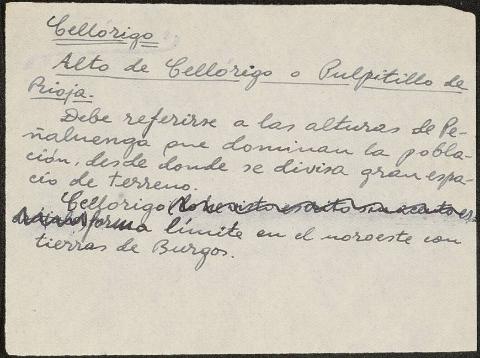 Cellórigo
Alto de Cellórigo o Pulpitillo de
Rioja.
Debe referirse a las alturas de Pe-
ñaluenga que dominan la pobla-
ción, desde donde se divisa gran espa-
cio de terreno.
Cellorigo (lo he visto escrito sin acento
forma límite en el noroeste con
tierras de Burgos.